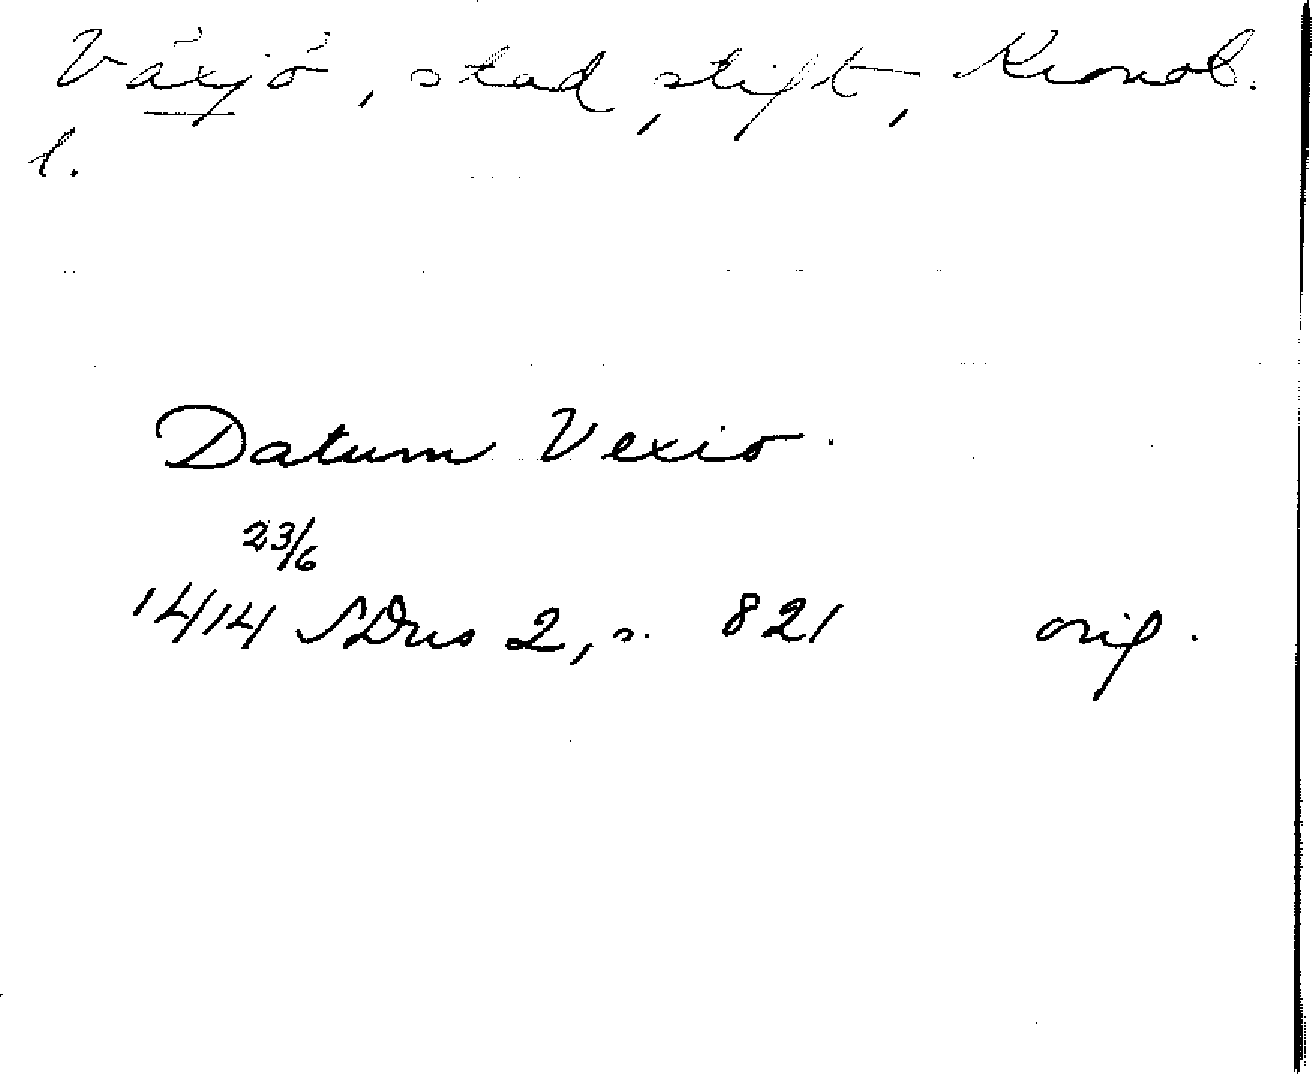 Växjö, stad, stift, Kronob.
l.
Datum Vexio.
23/6
1414 SDns 2, s. 821 orig.